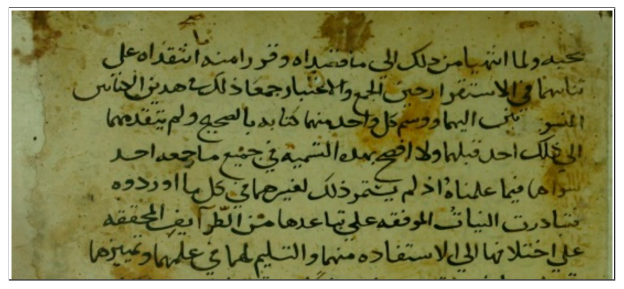 صحبه ولما انتهيا من ذلك الى ما قصداه وقررا منه ما انتقداه على
تناهيهما في الاستقرا حين الجمع والاختيار جمعا ذلك في هذين الكتابين
المنسوبين اليهما ووسم كل واحد منهما كتابه بالصحيح ولم يتقدمهما
الى ذلك احد قبلهما ولا افصح بهذه التسميه في جميع ما جمعه احد
سواهما فيما علمناه اذ لم يستمر ذلك لغيرهما في كل ما اوردوه
فتبادرت النيات الموفقه على تباعدها من الطرايف المحققه
على اختلافها الى الاستفاده منهما والتسليم لهما في علمهما وتمييزهما